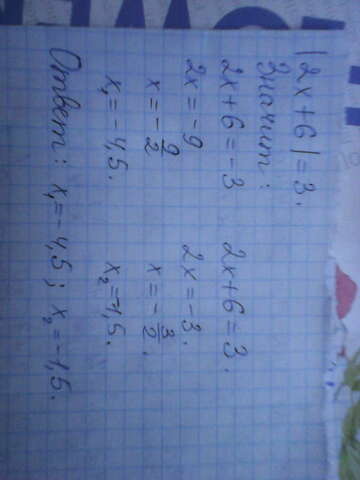 |2x+6|=3.
Значит:
2x+6=-3 2x+6=3.
2x=-9 2x=-3.
x=-9/2 x=-3/2.
x₁=-4,5. x₂=-1,5.
Ответ: x₁=-4,5; x₂=-1,5.